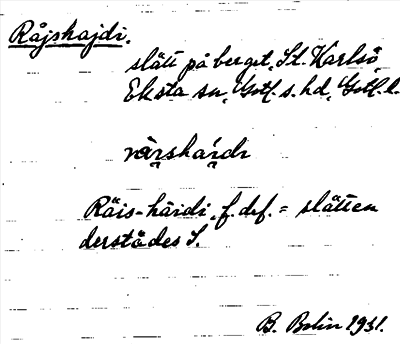 Råjshajdi.
slätt på berget, St. Karlsö,
Eksta sn, Gotl. s. hd, Gotl. l.
Räis-häidi, f. def. = slätten
derstädes S.
B. Bolin 1931.